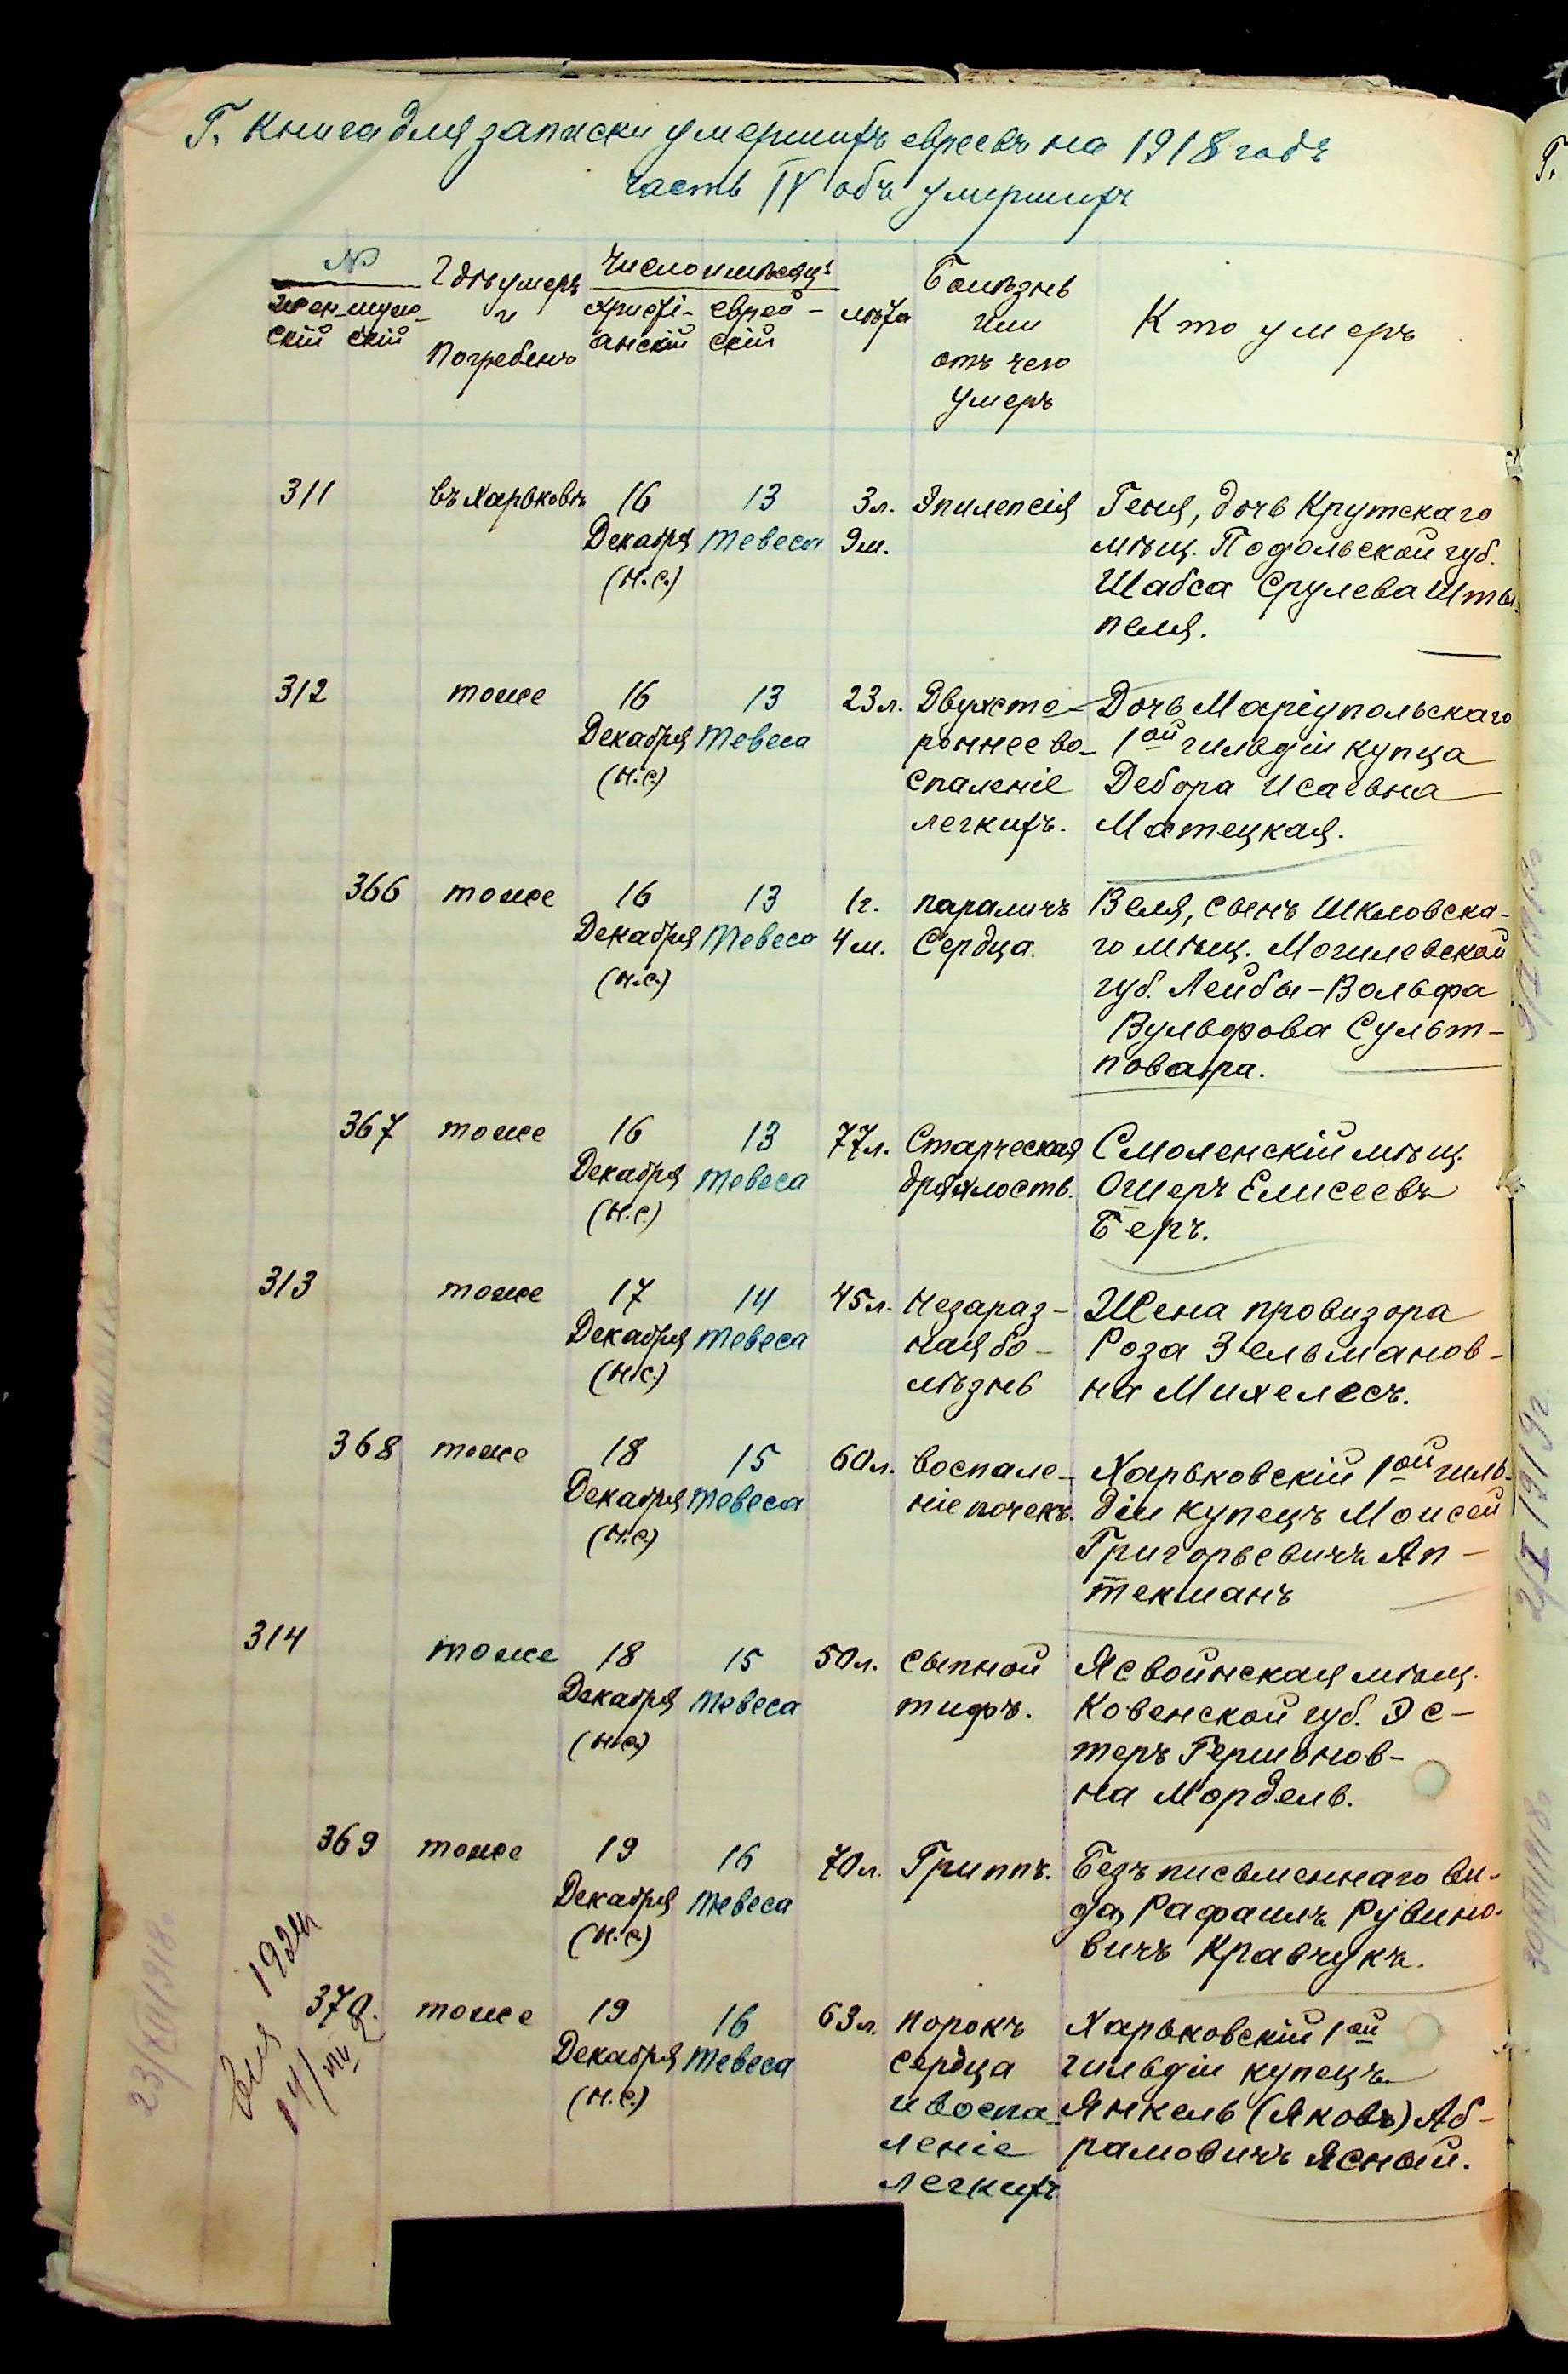 Г. Книга для записки умершихъ евреевъ на 1918 годъ
часть IV объ умершихъ
№
Женскій Мужескій
Гдѣ умеръ и погребенъ
Число и мѣсяцъ
Христіанскій
Еврейскій
лѣта
Болѣзнь или отъ чего умеръ
Кто умеръ
311 въ Харьковѣ 16 13 3л. Эпилепсія Геня, дочь Крутскаго
Декабря Тевеса 9м. мѣщ. Подольской губ.
(н.с.) Шабса Срулева Шты-
пеля.
312 тоже 16 13 23л. Двухсто- Дочь Маріупольскаго
Декабря Тевеса роннее во- 1ой гильдіи купца
(н.с.) спаленіе Дебора Исаевна
легкихъ. Матецкая.
366 тоже 16 13 1г. параличъ Веля, сынъ Шкловска-
Декабря Тевеса 4м. Сердца. го мѣщ. Могилевской
(н.с.) губ. Лейбы-Вольфа
Вульфова Сульт-
повара.
367 тоже 16 13 77л. Старческая Смоленскій мѣщ.
Декабря Тевеса дряхлость. Ошеръ Елисеевъ
(н.с.) Беръ.
313 тоже 17 14 45л. Незараз- Жена провизора
Декабря Тевеса ная бо- Роза Зельманов-
(н.с.) лѣзнь на Михелесъ.
368 тоже 18 15 60л. воспале- Харьковскій 1ой гиль-
Декабря Тевеса ніе почекъ. діи купецъ Моисей
(н.с.) Григорьевичъ Ап-
текманъ
314 тоже 18 15 50л. сыпной Ясвойнская мѣщ.
Декабря Тевеса тифъ. Ковенской губ. Эс-
(н.с.) теръ Гершонов-
на Мордель.
369 тоже 19 16 70л. Гриппъ. Безъ письменнаго ви-
Декабря Тевеса да, Рафаилъ Рувино-
(н.с.) вичъ Кравчукъ.
370. тоже 19 16 63л. порокъ Харьковскій 1ой
Декабря Тевеса сердца гильдіи купецъ
(н.с.) и воспа- Янкель (Яковъ) Аб-
леніе рамовичъ Ясный.
легкихъ
23/XII 1918г.
1924
14/VII
2/I 1919г.
30/XII 1918г.
Г.